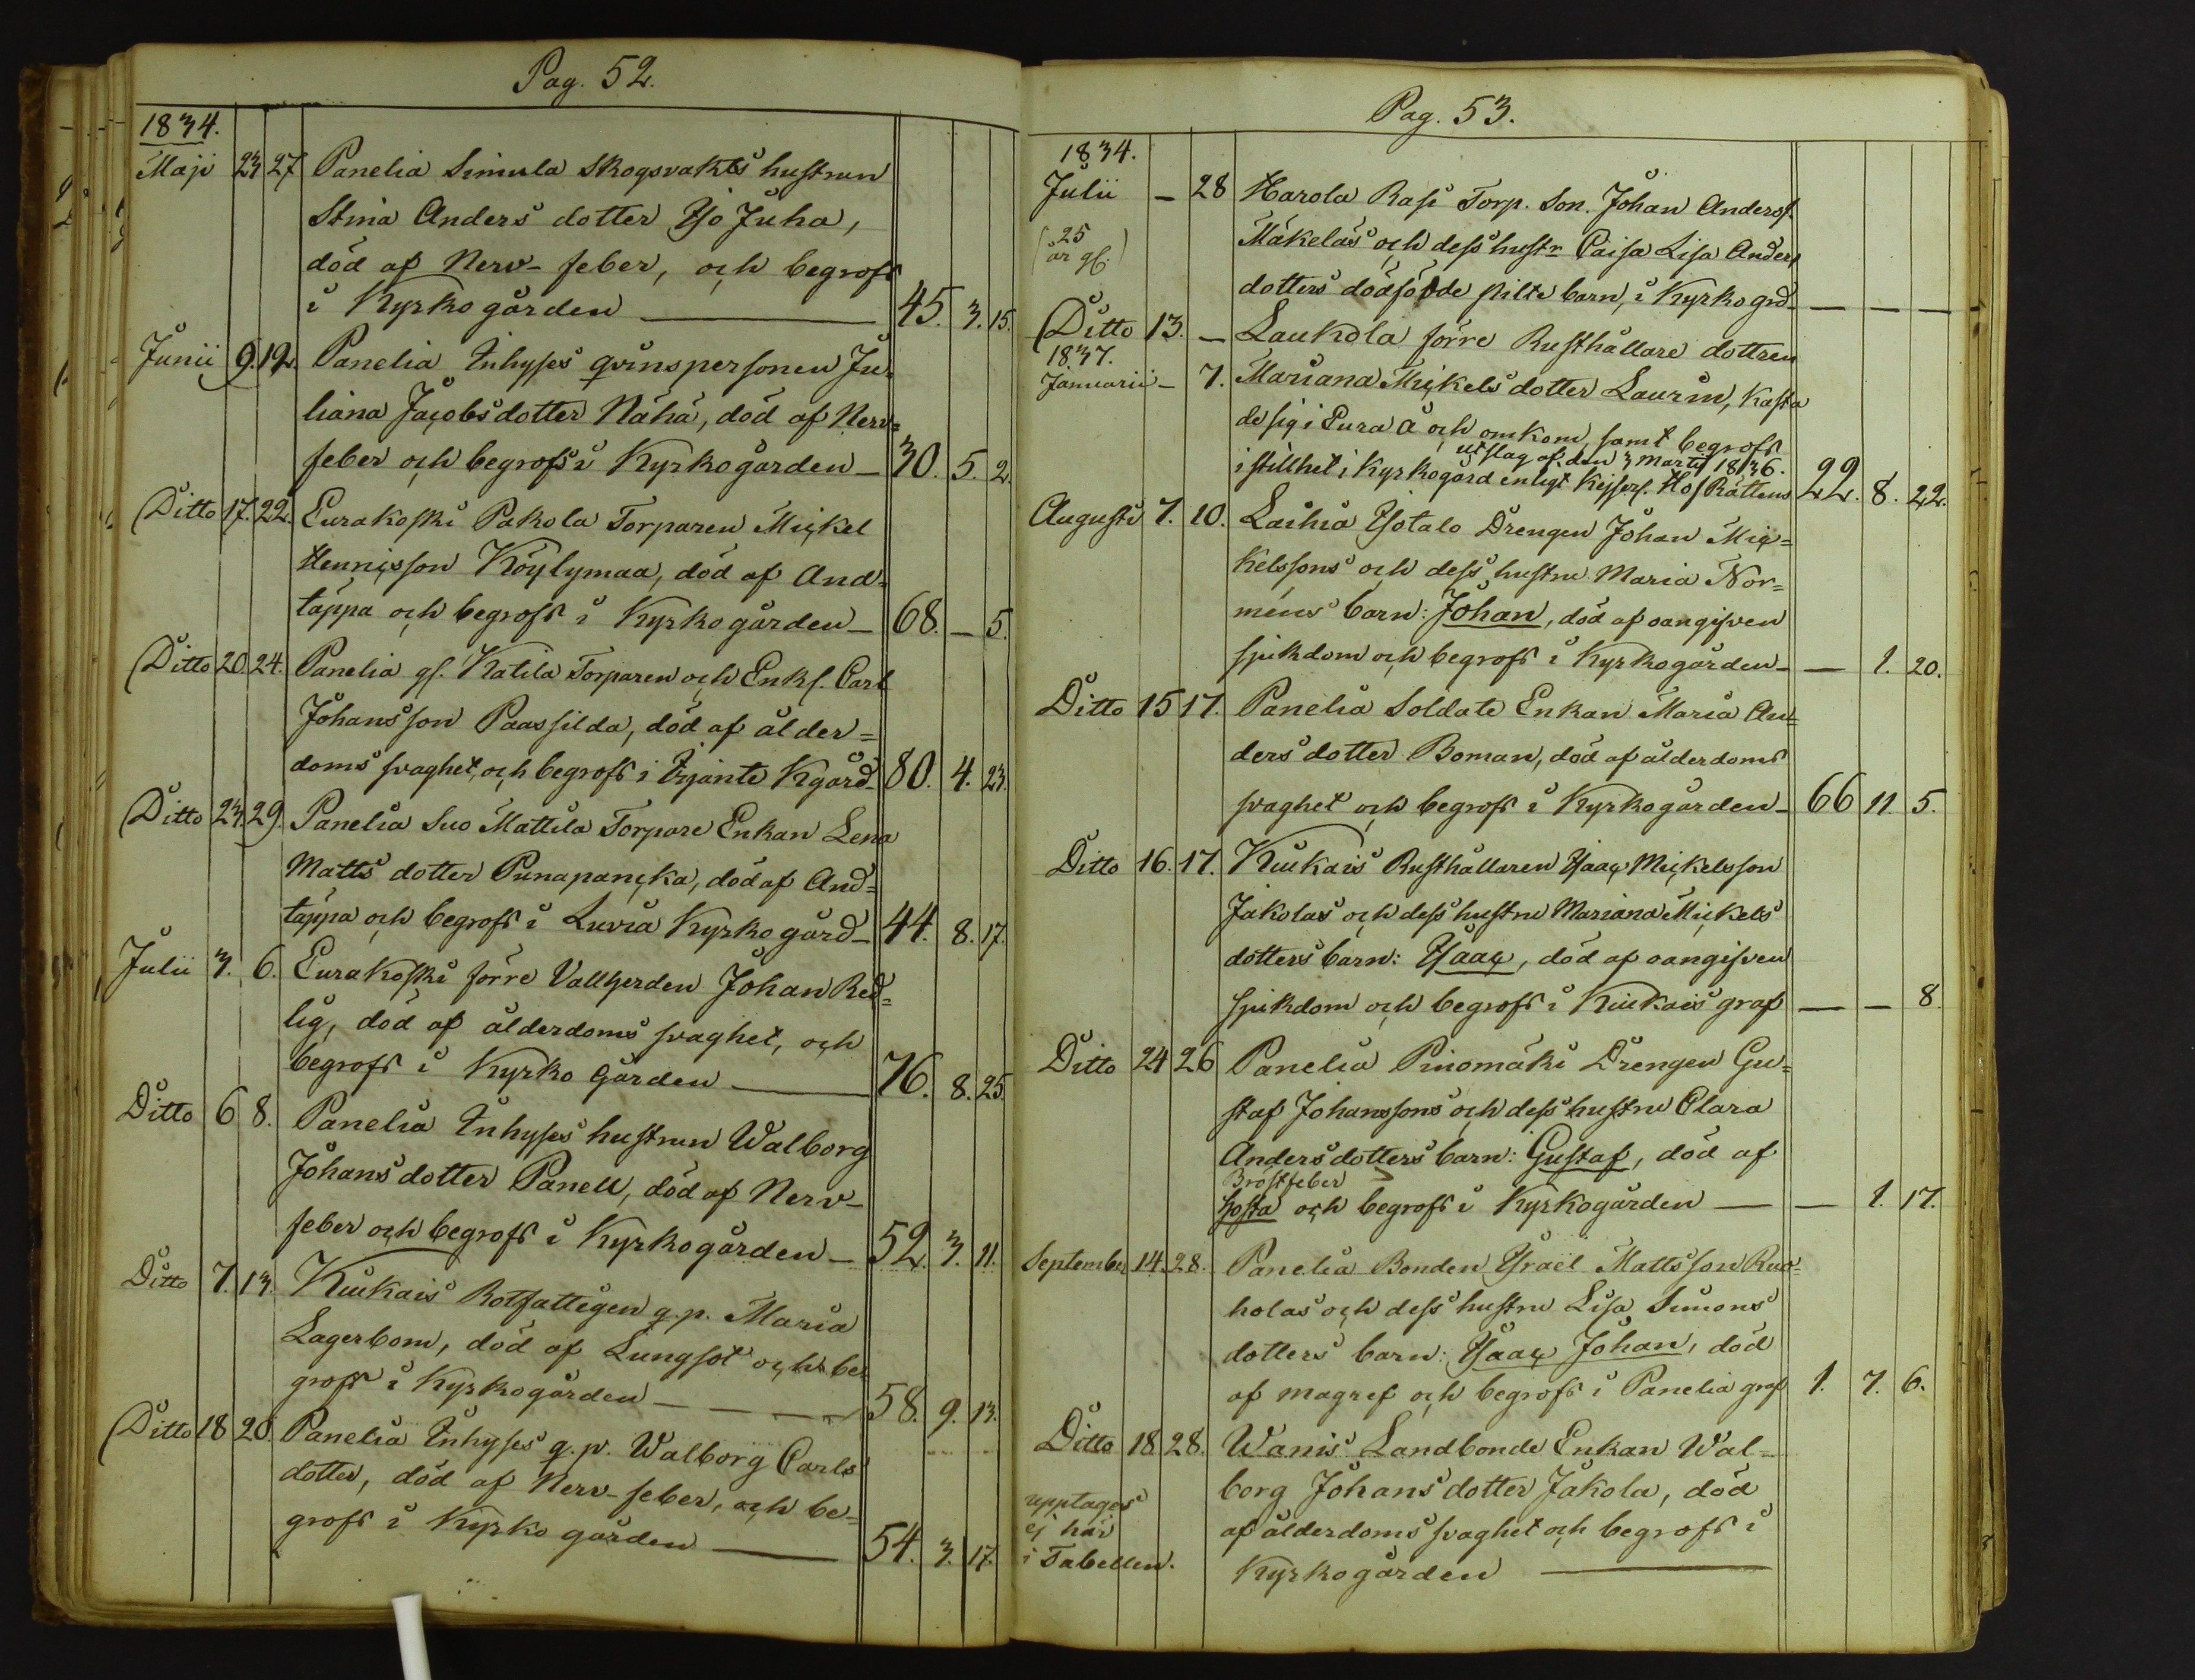 Pag. 52.
1834.
Maji 23 27 Panelia Simula Skogsvakts hustrun
Stina Anders dotter Iso Juha,
död af Nerv-feber, och begrofs
i Kyrko gården — 45. 3. 15.
Junii 9. 12. Panelia Inhyses qvinspersonen Ju-
liana Jacobsdotter Nähä, död af Nerv=
feber och begrofs i Kyrkogården — 30. 5. 2.
Ditto 17. 22. Eurakoski Pakola Torparen Mickel
Henricsson Köylymaa, död af And-
täppa och begrofs i Kyrkogården — 68. — 5.
Ditto 20 24. Panelia gl. Katila Torparen och Enkl. Carl
Johansson Paassilda, död af ålder=
doms svaghet, och begrofs i Irjante Kgård — 80. 4. 23.
Ditto 23 29. Panelia Suo Mattila Torpare Enkan Lena
Matts dotter Punapancka, död af And=
täppa och begrofs i Luvia Kyrko gård — 44. 8. 17.
Julii 3. 6. Eurakoski förre Vallherden Johan Red=
lig, död af ålderdoms svaghet, och
begrofs i Kyrko Gården — 76. 8. 25.
Ditto 6 8. Panelia Inhyses hustrun Walborg
Johans dotter Panell, död af Nerv-
feber och begrofs i Kyrkogården — 52. 3. 11.
Ditto 7. 13. Kiukais Rotfattigen q.p. Maria
Lagerbom, död af Lungsot och be
grofs i Kyrkogården — 58. 9. 13.
Ditto 18 20. Panelia Inhyses q.p. Walborg Carls
dotter, död af Nerv-feber, och be=
grofs i Kyrko gården — 54. 3. 17.
Pag. 53.
1834.
Julii — 28 Harola Rasi Torp. Son. Johan Anderss.
(25 Mäkeläs och dess hustr Caisa Lisa Anders
år gl.)
dotters dödfödde pilte barn, i Kyrko grd — — —
Ditto 13. — Laukola förre Rusthållare dottren
1837.
Januarii — 7. Mariana Mickels dotter Laurin, kasta
de sig i Eura å och omkom, samt begrofs
utslag af den 3 Martii 1836.
i stillhet i Kyrkogård enligt Kejserl. Hof Rättens 22. 8. 22.
Augusti 7. 10. Laihia Isotalo Drengen Johan Mic=
kelssons och dess hustru Maria Nor=
méns barn: Johan, död af oangifven
sjukdom och begrofs i Kyrkogården — — 1. 20.
Ditto 15 17. Panelia Soldate Enkan Maria An=
ders dotter Boman, död af ålderdoms
svaghet och begrofs i Kyrkogården — 66 11. 5.
Ditto 16. 17. Kiukais Rusthållaren Isaac Mickelsson
Jakolas och dess hustru Mariana Mickels
dotters barn: Isaac, död af oangifven
sjukdom och begrofs i Kiukais graf — — 8.
Ditto 24 26 Panelia Pinomäki Drengen Gu=
staf Johanssons och dess hustru Clara
Andersdotters barn: Gustaf, död af
Bröstfeber
hosta och begrofs i Kyrkogården — — 1. 17.
September 14. 28. Panelia Bonden Israel Mattsson Ruo-
holas och dess hustru Lisa Simons
dotters barn: Isaac Johan, död
af magref och begrofs i Panelia graf 1. 7. 6.
Ditto 18 28. Wanis Landbonde Enkan Wal-
borg Johans dotter Jakola, död
upptages
ej här af ålderdoms svaghet och begrofs i
i Tabellen. Kyrkogården —